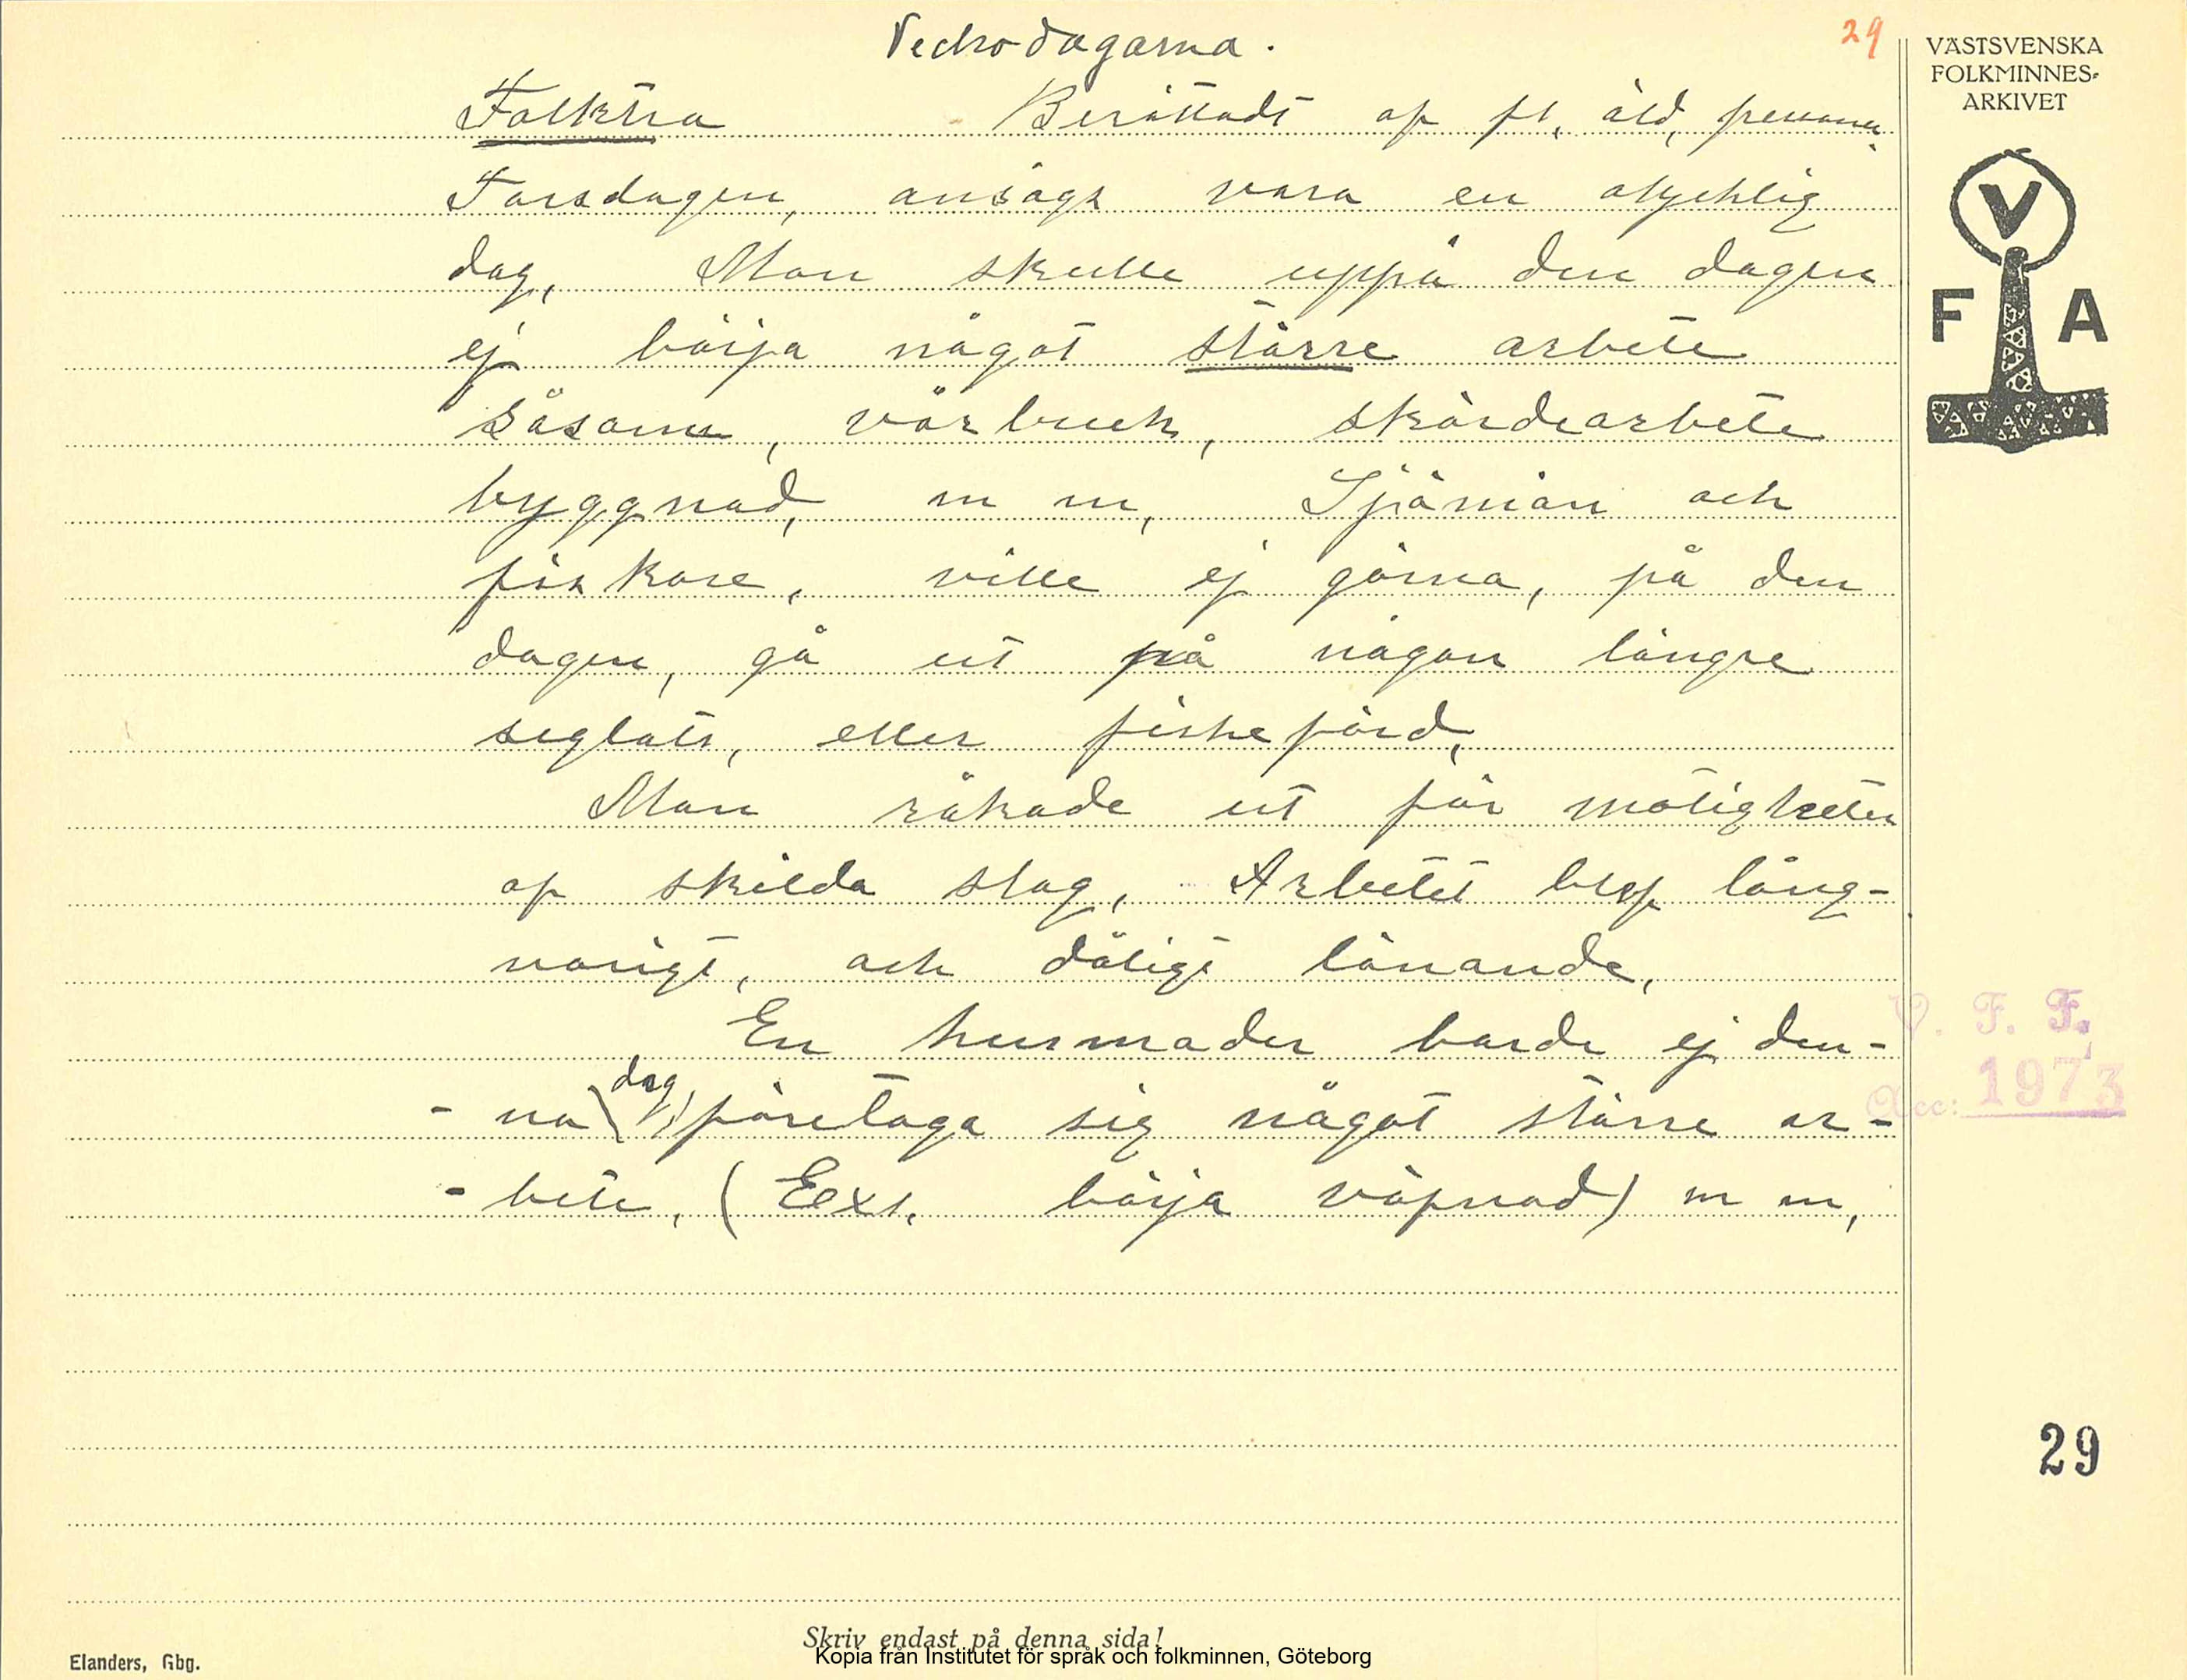 Veckodagarna.
29
VÄSTSVENSKA
FOLKMINNES-
ARKIVET
V
F A
Folktro Berättadt af fl, äld, personer.
Torsdagen, ansågs vara en olycklig
dag, Man skulle uppå den dagen
ej börja något större arbete
såsom, vårbruk, skördearbete
byggnad, m m, Sjömän och
fiskare, ville ej gärna, på den
dagen, gå ut på någon längre
seglats, eller fiskefärd,
Man råkade ut för motigheter
af skilda slag, Arbetet blef lång-
varigt, och dåligt lönande,
En husmoder borde ej den-
- na dag, företaga sig något större ar-
- bete, (Exs. börja väfnad) m m,
V. F. F.
Acc: 1973
29
Skriv endast på denna sida!
Kopia från Institutet för språk och folkminnen, Göteborg
Elanders, Gbg.